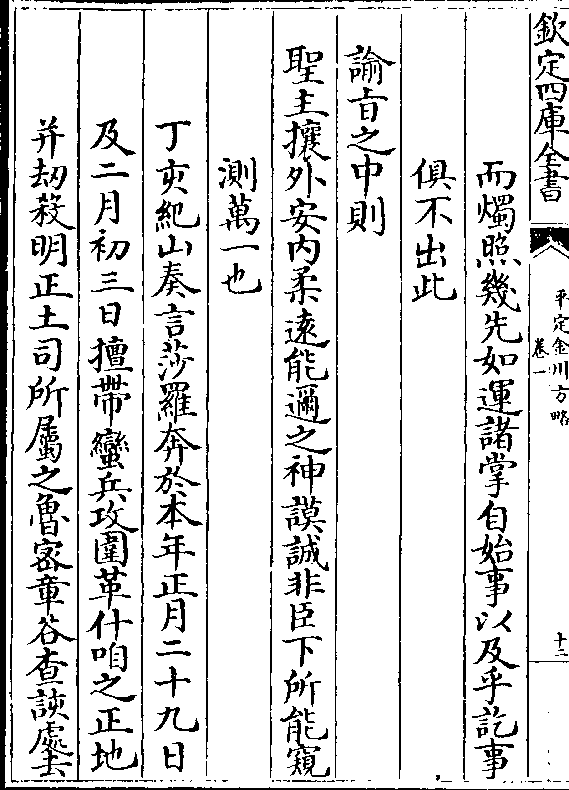 欽定四庫全書
平定金川方略
卷一
十三
而燭照幾先如運諸掌自始事以及乎訖事
俱不出此
諭旨之中則
聖主攘外安内柔遠能邇之神謨誠非臣下所能窺
測萬一也
丁亥紀山奏言莎羅奔於本年正月二十九日
及二月初三日擅帶蠻兵攻圍革什咱之正地
并刼殺明正土司所屬之魯宻章谷查該處去